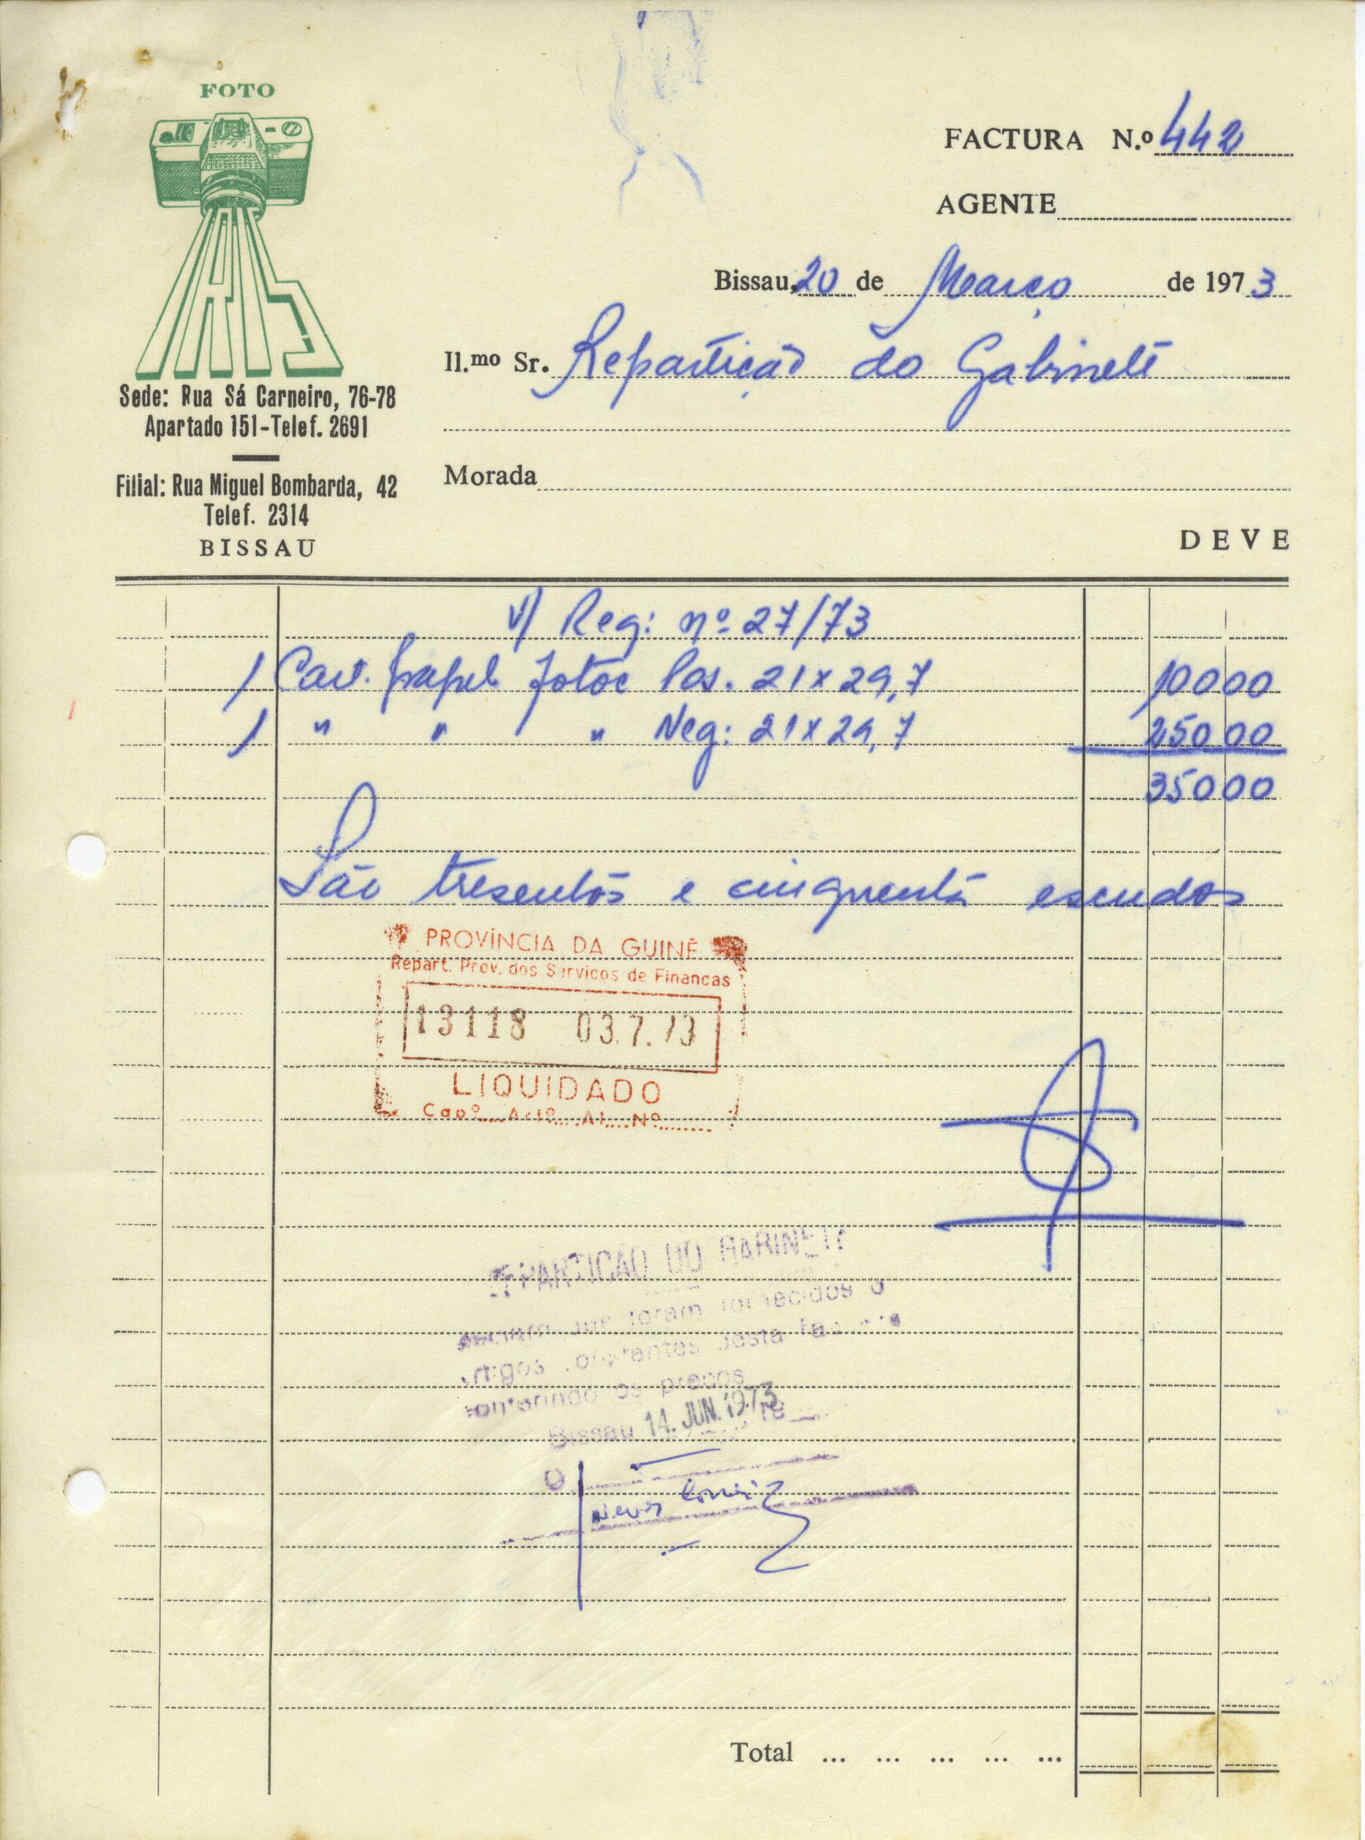 FOTO
IRIS
Sede: Rua Sá Carneiro, 76-78
Apartado 151-Telef. 2691
Filial: Rua Miguel Bombarda, 42
Telef. 2314
BISSAU
FACTURA N.º 442
AGENTE
Bissau, 20 de Março de 1973
Il.mo Sr. Repartição do Gabinete
Morada
DEVE
V/ Req: nº 27/73
1 Cart. papel fotoc Pos. 21x29,7 10000
1 " " " Neg: 21x29,7 25000
35000
São tresentos e cinquenta escudos
PROVÍNCIA DA GUINÉ
Repart. Prov. dos Serviços de Finanças
13118 03.7.73
LIQUIDADO
Capº Artº Al. Nº
REPARTIÇÃO DO GABINETE
que foram fornecidos o
artigos constantes desta
conferindo os preços
Bissau 14. JUN. 1973
O
Total ... ... ... ... ...